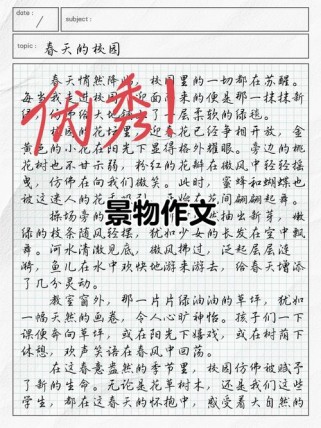 date:
subject:
topic: 春天的校园
春天悄然降临，校园里的一切都在苏醒。
每当我走过校园，迎面而来的便是那一抹抹新
绿，仿佛给大地铺了一层柔软的绿毯。
校园的花坛里，迎春花已经争相开放，金
黄色的小花在阳光下显得格外耀眼。旁边的桃
花树也不甘示弱，粉红的花瓣在微风中轻轻摇
曳，仿佛在向我们微笑。此时，蜜蜂和蝴蝶也
被这迷人的花 间翩翩起舞。
操场旁的 抽出新芽，嫩
绿的枝条随风轻摆，犹如少女的长发在空中飘
舞。河水清澈见底，微风拂过，泛起层层涟
漪，鱼儿在水中欢快地游来游去，给春天增添
了几分灵动。
教室窗外，那一片片绿油油的草坪，犹如
一幅天然的画卷，令人心旷神怡。孩子们一下
课便奔向草坪，或在阳光下嬉戏，或在树荫下
休憩，欢声笑语在春风中回荡。
在这春意盎然的季节里，校园仿佛被赋予
了新的生命。无论是花草树木，还是我们这些
学生，都在这春天的怀抱中，感受着大自然的
优秀！
景物作文